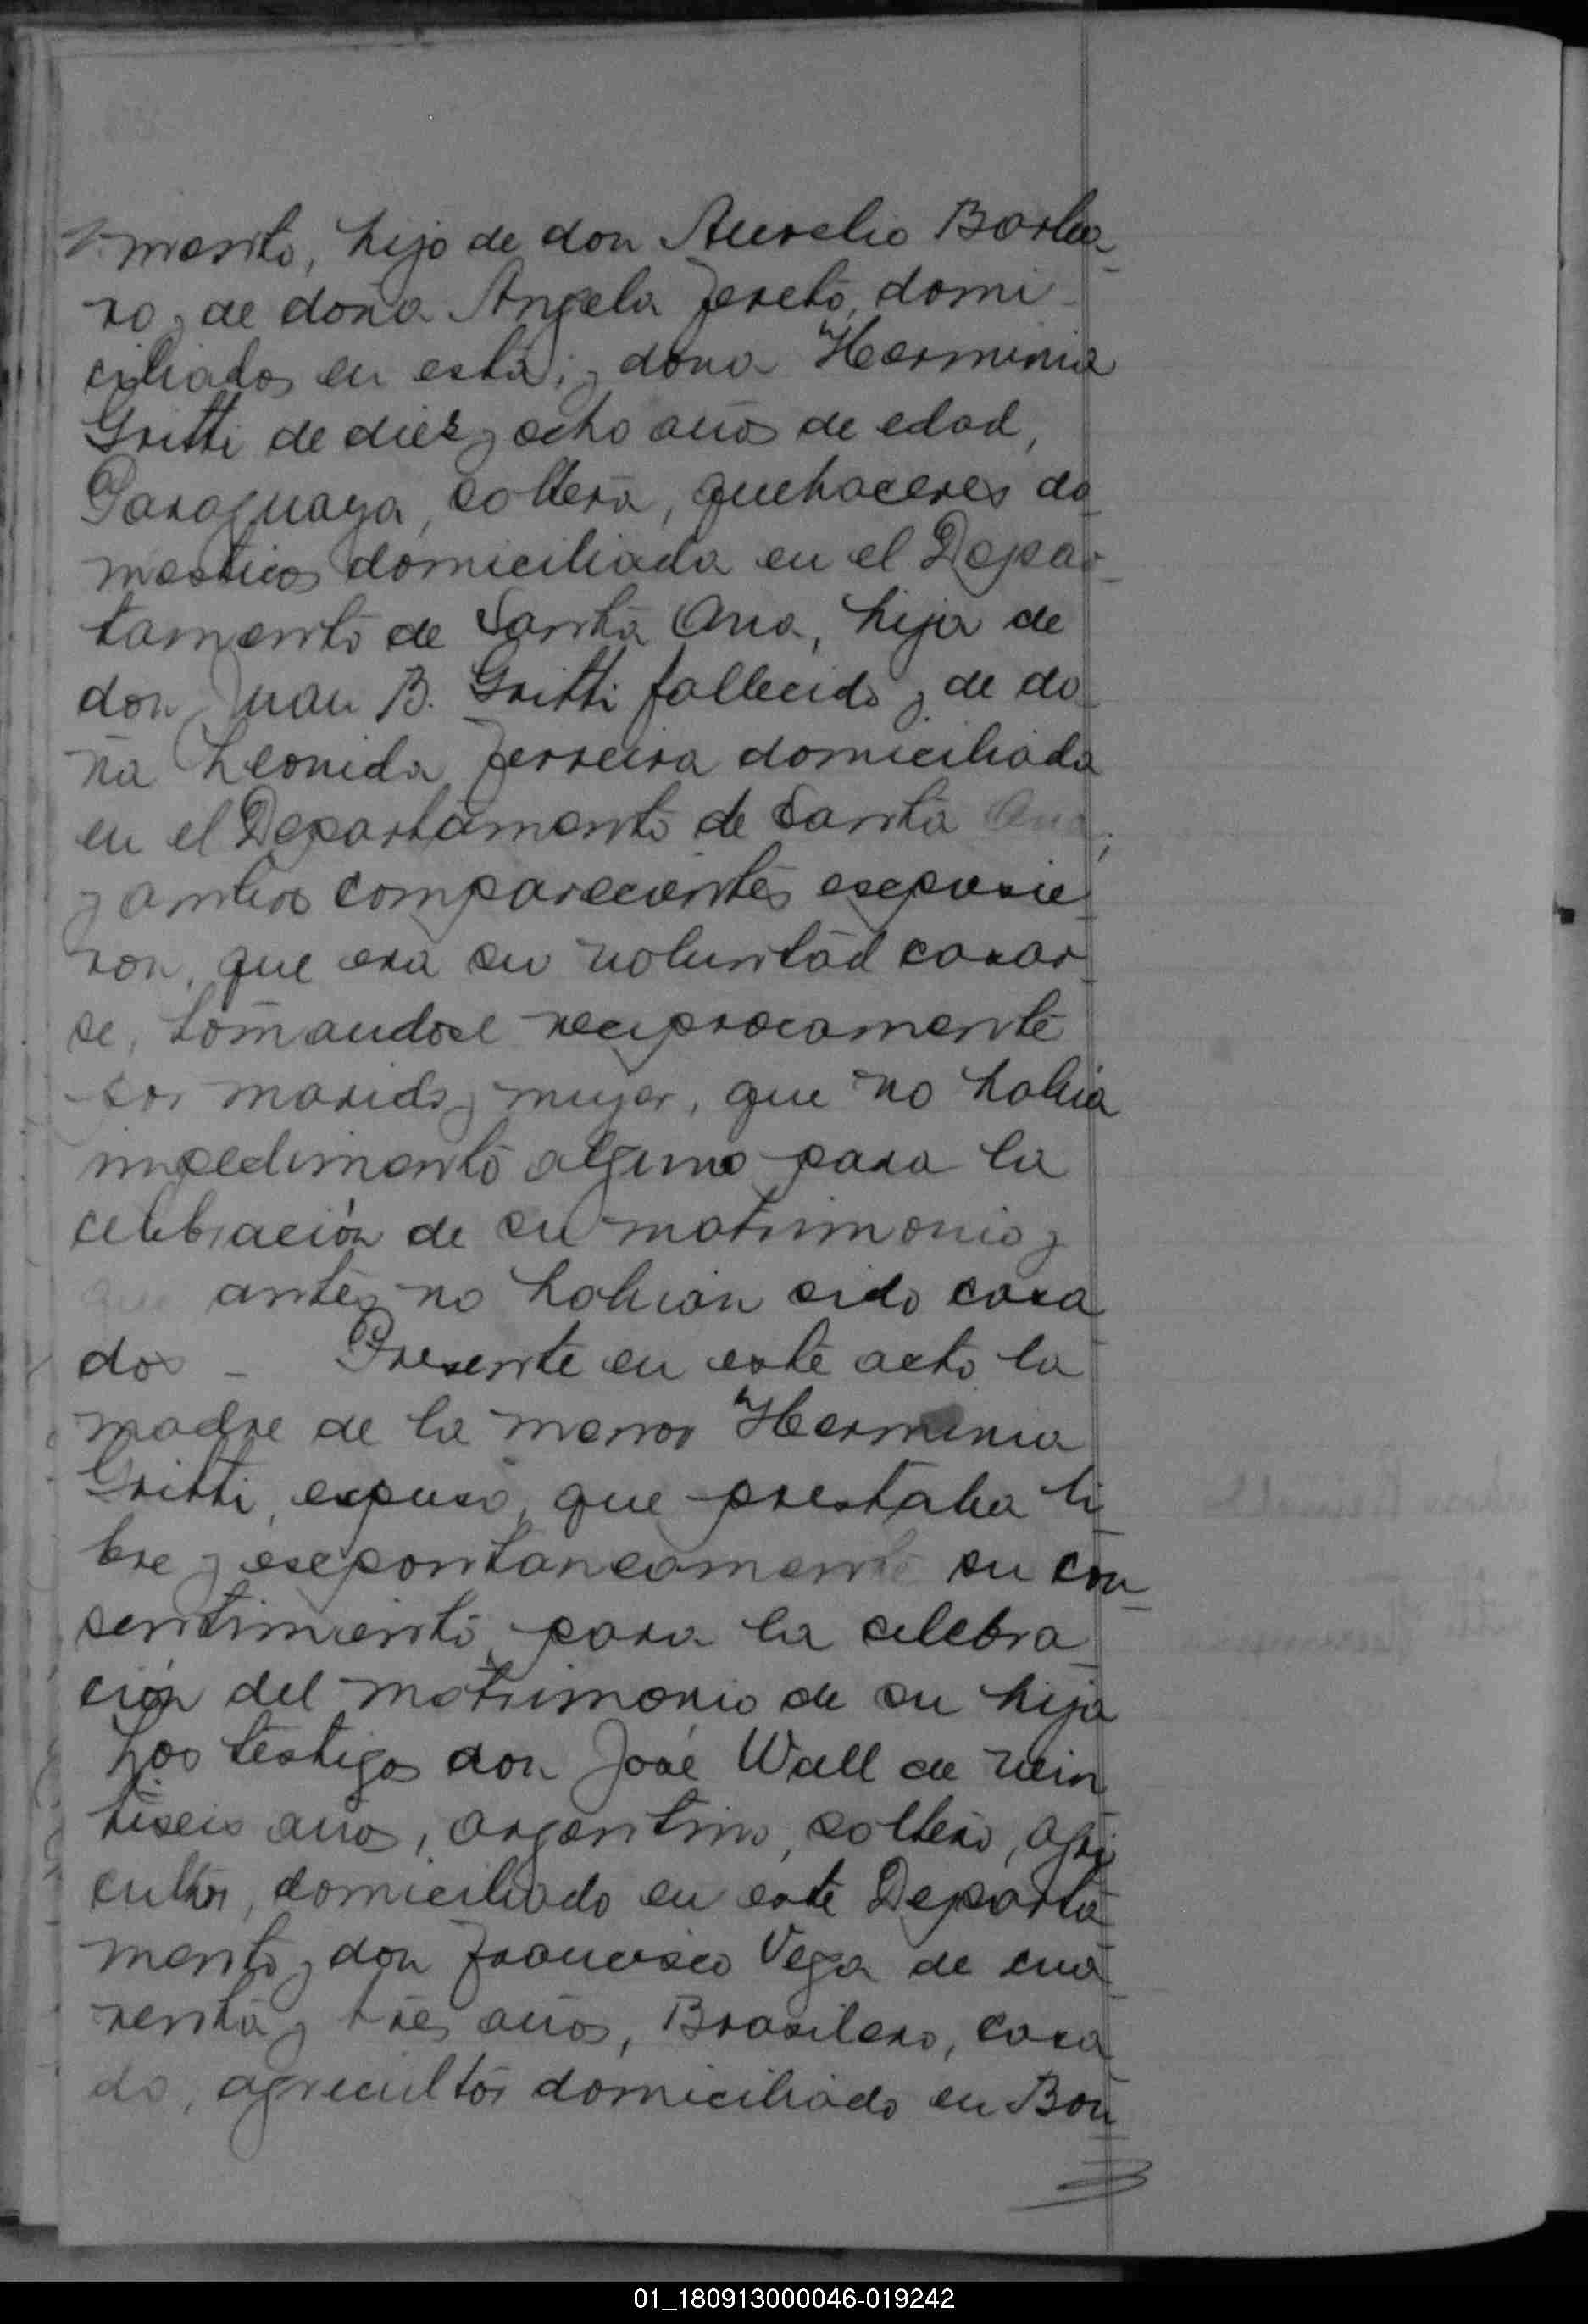 mento, hijo de don Aurelio Barba-
ro y de doña Angela Fereto, domi-
ciliados en esta; y doña Herminia
Gritti de diez y ocho años de edad,
Paraguaya, soltera, quehaceres do-
mesticos domiciliada en el Depar-
tamento de Santa Ana, hija de
don Juan B. Gritti fallecido y de do-
ña Leonida Ferreira domiciliada
en el Departamento de Santa Ana;
y ambos comparecientes expusie-
ron, que era su voluntad casar-
se, tomandose reciprocamente
por marido y mujer, que no habia
impedimento alguno para la
celebración de su matrimonio y
que antes no habian sido casa-
dos – Presente en este acto la
madre de la menor Herminia
Gritti, expuso, que prestaba li-
bre y espontaneamente su con-
sentimiento para la celebra-
ción del matrimonio de su hija
Los testigos don José Wall de vein
tiseis años, argentino, soltero, agri
cultor, domiciliado en este Departa
mento y don Francisco Vega de cua-
renta y tres años, Brasilero, casa
do, agricultor domiciliado en Bon
01_180913000046-019242